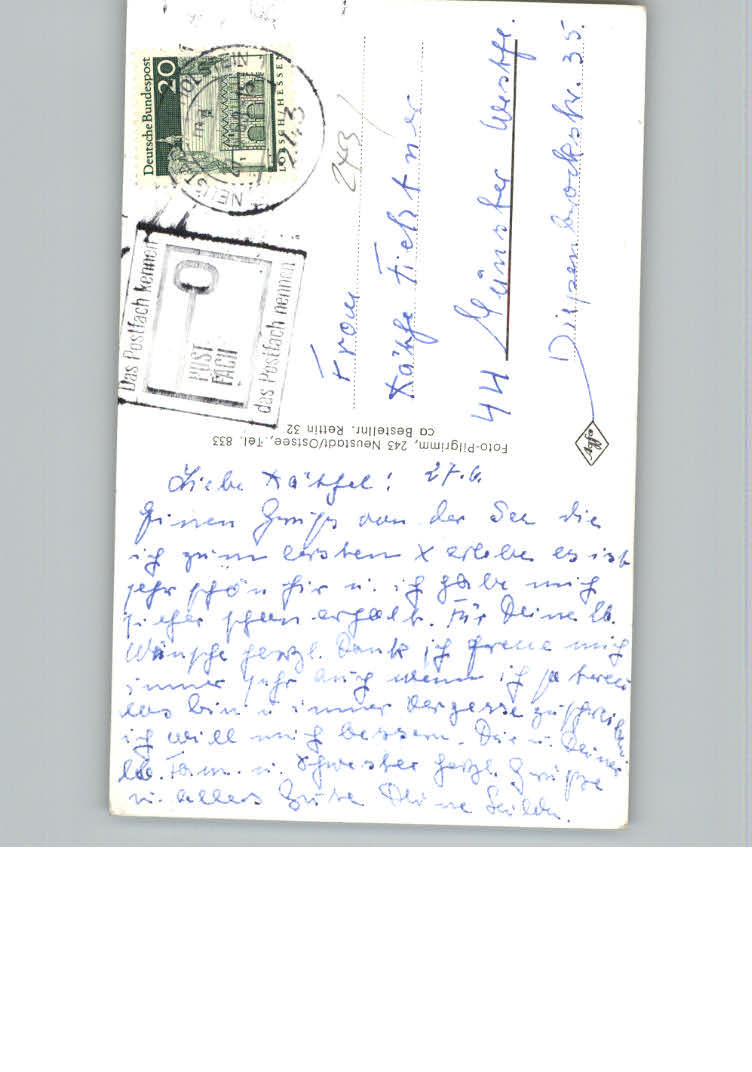 Deutsche Bundespost
20
LORSCH/HESSEN
243
Das Postfach kennen
POST
FACH
das Postfach nennen
Frau
Käthe Fichtner
44 Münster Westf.
Diepenbrockstr. 35.
Foto-Pilgrimm, 243 Neustadt/Ostsee, Tel. 833
ca Bestellnr. Rettin 32
Agfa
Liebe Käthel! 27.6.
Einen Gruß von der See die
ich zum ersten X erlebe es ist
sehr schön hier u. ich habe mich
sicher schon erholt. Für Deine lb.
Wünsche herzl. Dank ich freue mich
immer sehr auch wenn ich so
bin u immer vergesse zu schreiben
ich will mich bessern. Dir u. Deiner
lb. Fam. u. Schwester herzl. Grüße
u. alles Gute Deine